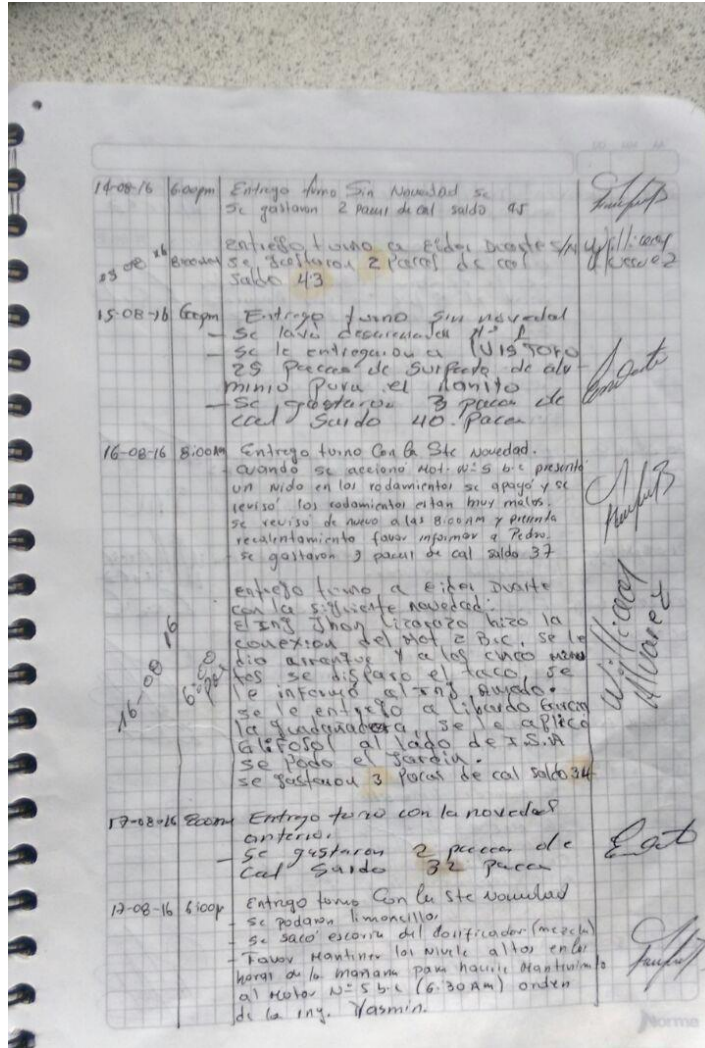 14-08-16 6:00pm Entrego turno Sin Novedad se
Se gastaron 2 pacas de cal saldo 45
8:00AM entrego turno a Eider Duarte S/N
se gastaron 2 pacas de cal
Saldo 43
15-08-16 6:00pm Entrego turno Sin novedad
- Se lavo N° 1
- Se le entregaron a LUIS TORO
25 Pacas de de alu-
minio para el
- Se gastaron 3 pacas de
cal Saldo 40. Pacas
16-08-16 8:00AM Entrego turno Con la Ste Novedad.
- Cuando se acciono Mot. N° 5 b.c presento
un ruido en los rodamientos se apago y se
reviso los rodamientos estan muy malos.
se reviso de nuevo a las 8:00AM y presenta
recalentamiento favor informar a Pedro.
- se gastaron 3 pacas de cal saldo 37
16-08-16 6:00pm entrego turno a eider Duarte
con la siguiente novedad:
El Ing Jhon Lizarazo hizo la
conexion del Mot 2 B.C, se le
dio arranque y a los cinco minu
tos se disparo el taco, se
le informo al Ing
se le entrego a Libardo Garcia
la guadañadora, se le aplico
Glifosol al lado de I.S.A
se Podo el Jardin.
se gastaron 3 Pacas de cal saldo 34
Williams
Alvarez
17-08-16 8:00am Entrego turno con la novedad
anterior.
- Se gastaron 2 pacas de
Cal Saldo 32 pacas
17-08-16 6:00p Entrego turno Con la Ste Novedad
- Se podaron limoncillo.
- Se saco escoria del dosificador (mezcla)
- Favor Mantener los Nivele altos en las
horas de la mañana para hacerle Mantenimiento
al Motor N° 5 b.c (6:30 Am) orden
de la ing. Yasmin.
Norma